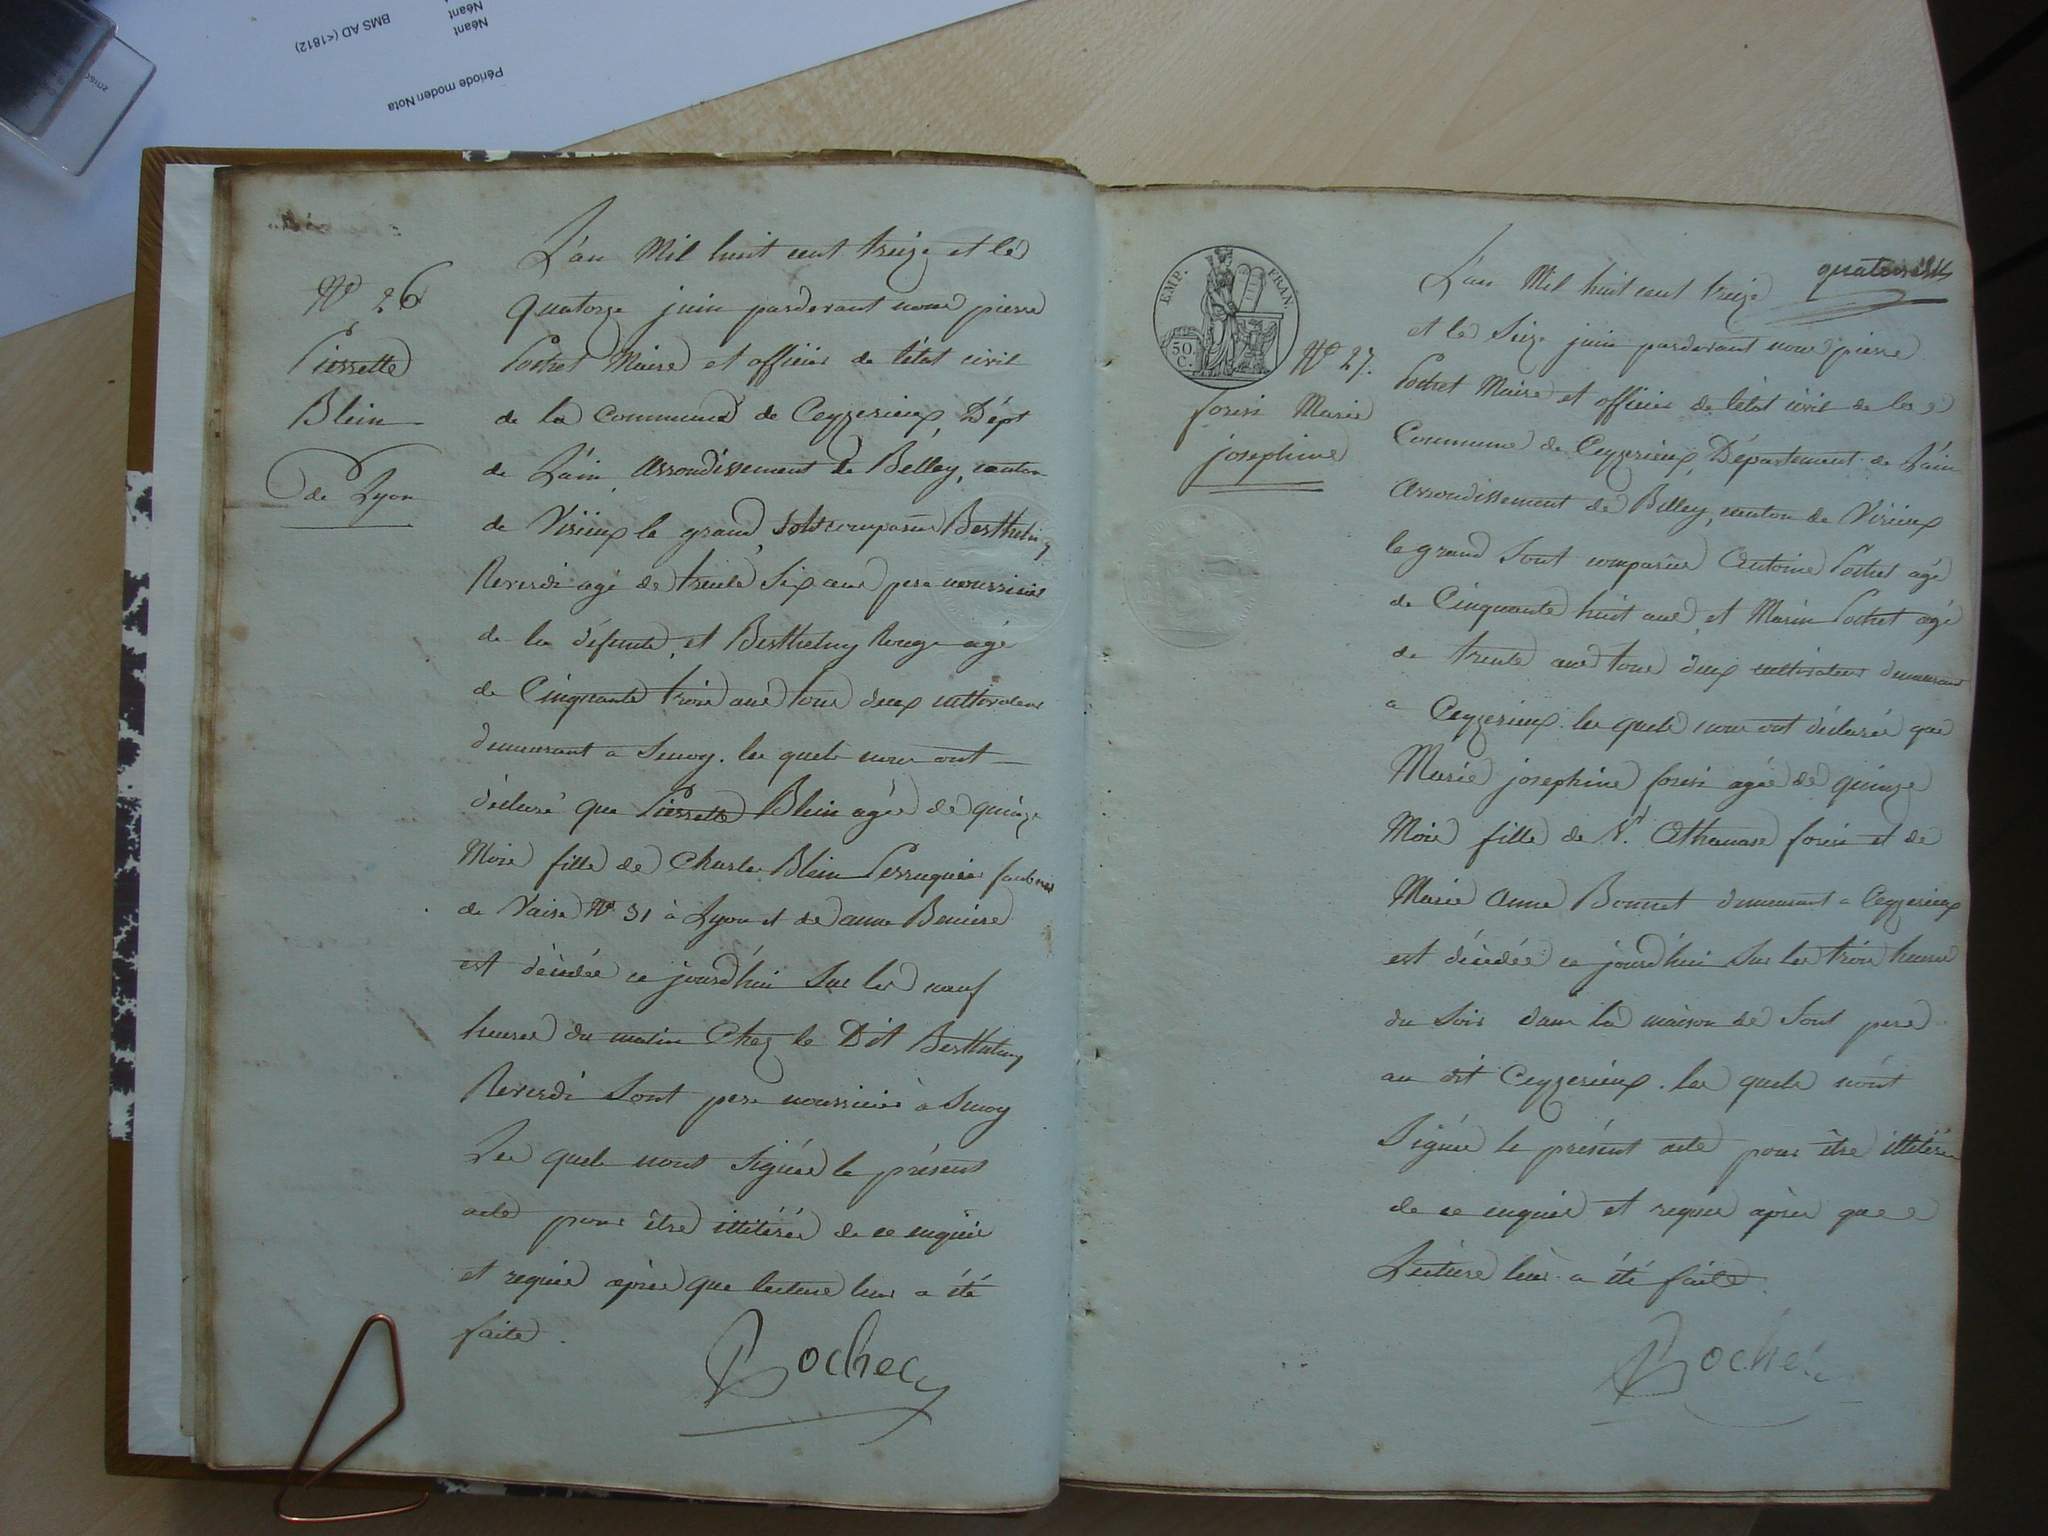 Néant
Néant
BMS AD (<1812)
Période modern Nota
L'an Mil huit cent treize et le
N° 26
quatorze juin pardevant nous pierre
Pierrette
Pochet Maire et officier de l'état civil
Blein
de la Commune de Ceyzerieux, Dépt
de Lyon
de L'ain, arrondissement de Belley, canton
de Virieux le grand, sont comparus Berthelmy
Reverdi agé de trente Six ans pere nourricier
de la défunte, et Berthelmy Rouge agé
de Cinquante trois ans tous deux cultivateurs
demeurant a . les quels nous ont
déclaré que Pierrette Blein agée de quinze
Mois fille de Charles Blein Perruquier faubourg
de Vaise N° 31 à Lyon et de anne
est décédée ce jourd'hui Sur les neuf
heures du matin Chez le Dit Berthelmy
Reverdi Sont pere nourricier à
Les quels nont Signée le présent
acte pour être illitérée de ce enquis
et requis après que lecture leur a été
faite.
Pochet
EMP. FRAN.
50
C.
quatorze 14
L'an Mil huit cent treize
et le Seize juin pardevant nous pierre
N° 27.
Pochet Maire et officier de l'état civil de la
Marie
josephine
Commune de Ceyzerieux, Département de L'ain
arrondissement de Belley, canton de Virieux
le grand Sont comparus Antoine Pochet agé
de Cinquante huit ans, et Marin Pochet agé
de trente ans tous deux cultivateurs demeurant
a Ceyzerieux. les quels nous ont déclarée que
Marie josephine agée de quinze
Mois fille de Athanase et de
Marie Anne Bonnet demeurant a Ceyzerieux
est décédée ce jourd'hui Sur les trois heures
du Soir dans la maison de Sont pere
au dit Ceyzerieux. les quels nont
Signée le présent acte pour être illitérée
de ce enquis et requis après que
Lecture leur a été faite.
Pochet